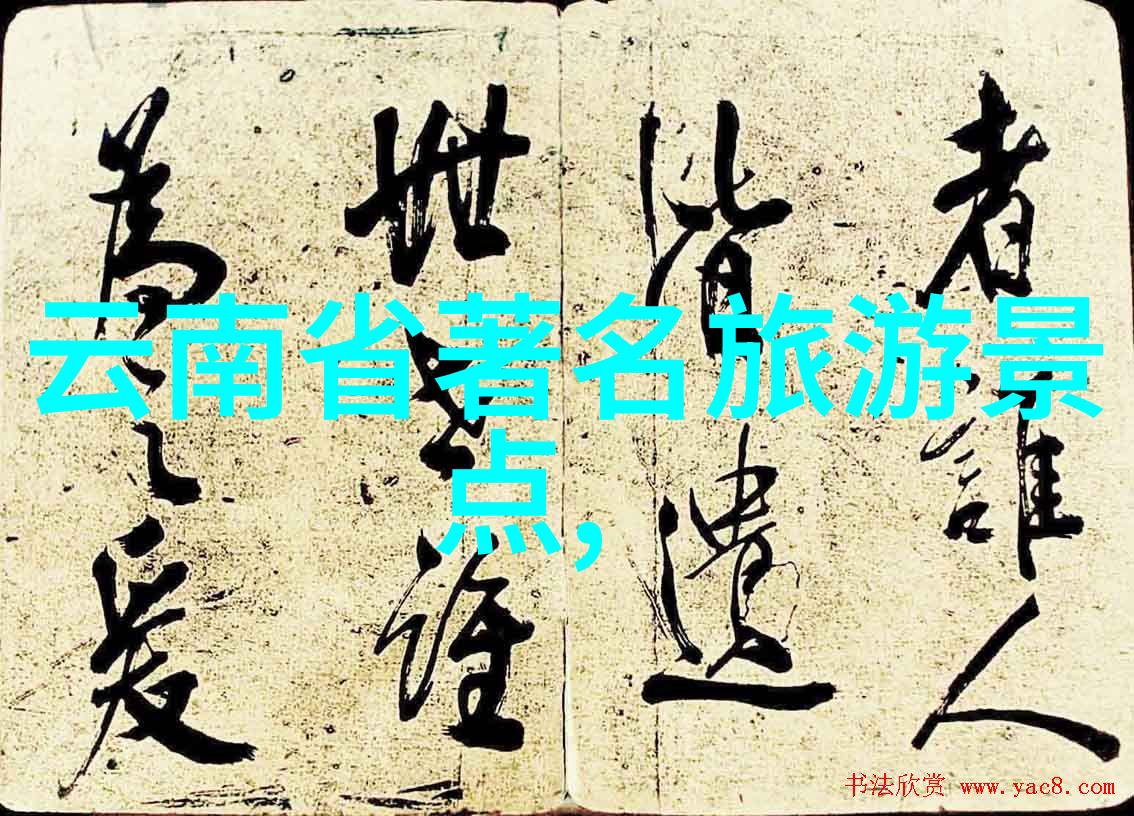 云南省著名旅游景
点,
者誰人
皆遺
世誰
為之
书法欣赏 www.yac8.com